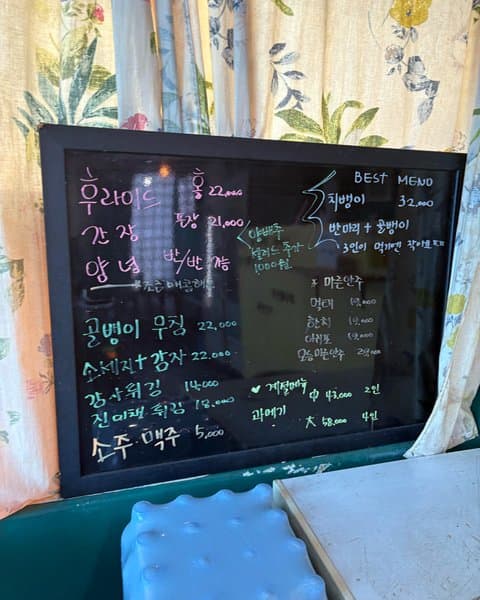 후라이드 홀 22,000
간장 포장 21,000
양념 반/반 가능
조금 매콤해요
양배추
샐러드 추가
1000원
골뱅이 무침 22,000
소세지+감자 22,000
감자튀김 14,000
진미채 튀김 18,000
소주·맥주 5,000
BEST MENU
치뱅이 32,000
반마리+골뱅이
3인이 먹기엔
마른안주
먹태
한치
아귀포
모듬마른안주
♥ 계절메뉴 中 43,000 2인
과메기 大 58,000 4인